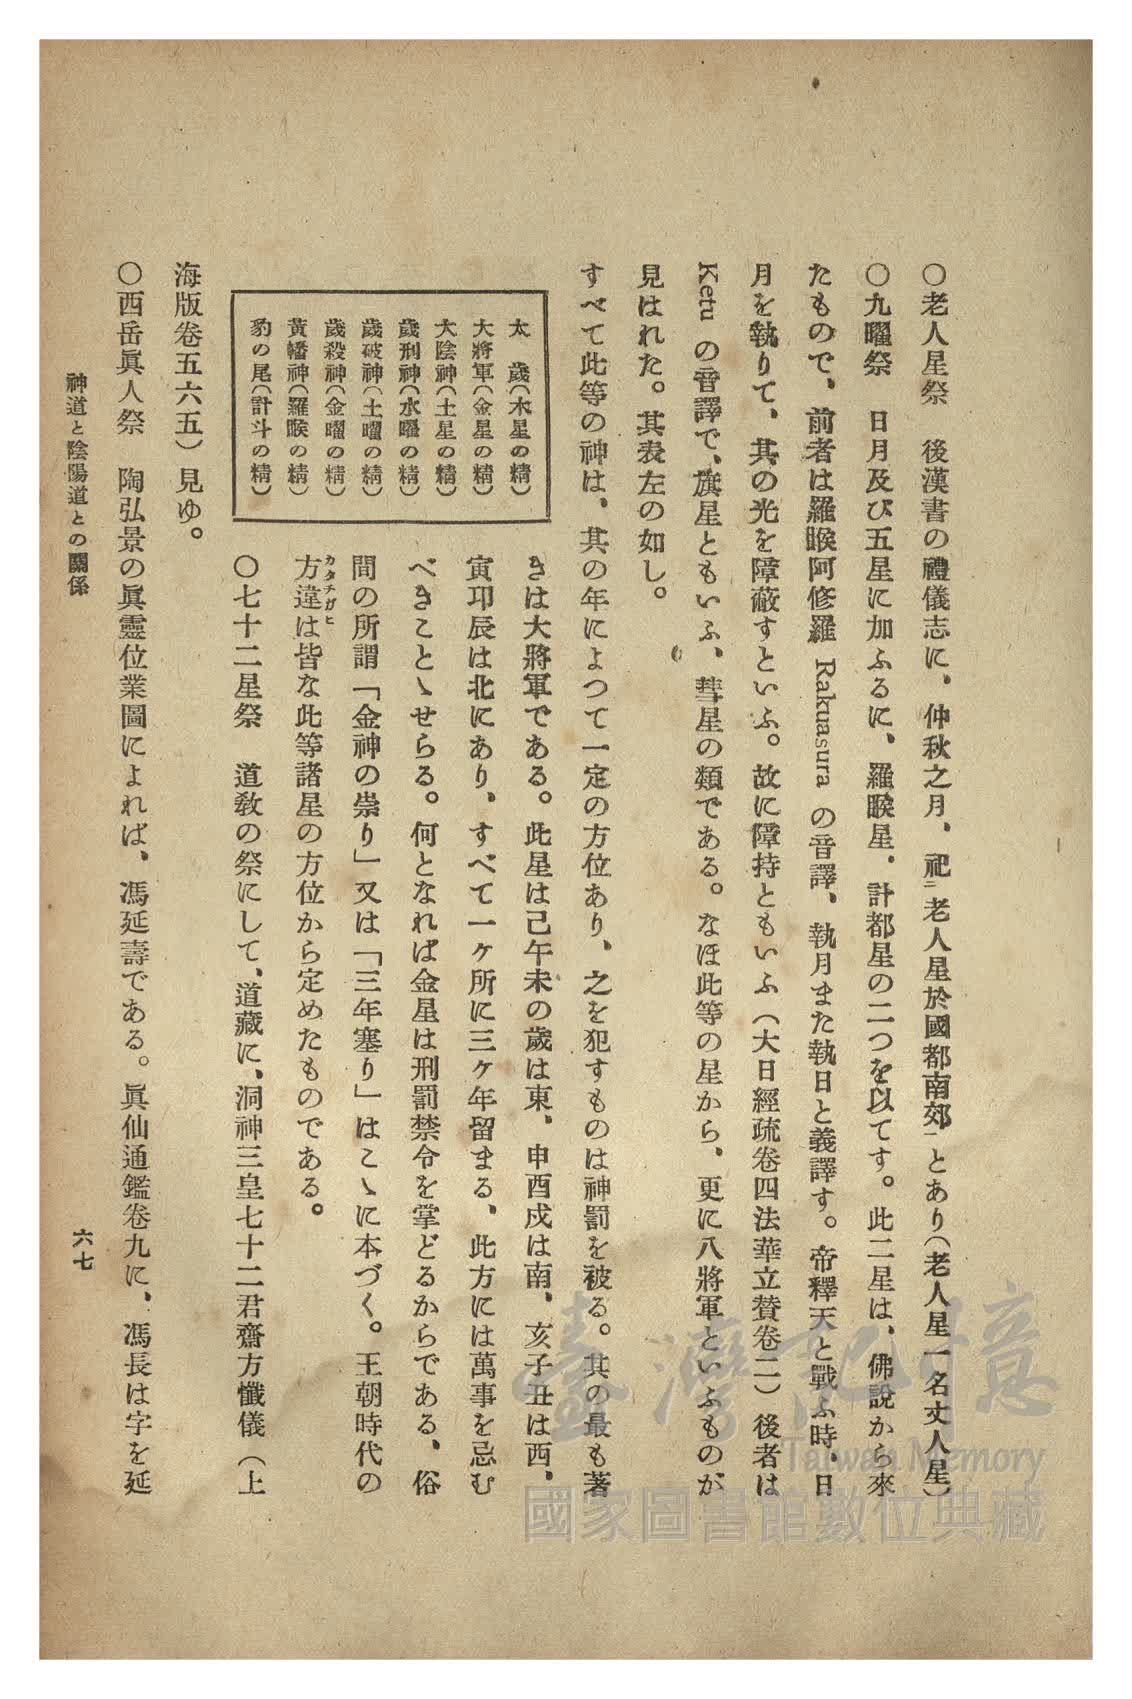 ○老人星祭　後漢書の禮儀志に、仲秋之月、祀ニ老人星於國都南郊一とあり（老人星一名丈人星）
○九曜祭　日月及び五星に加ふるに、羅睺星、計都星の二つを以てす。此二星は、佛說から來
たもので、前者は羅睺阿修羅 Rakuasura の音譯、執月また執日と義譯す。帝釋天と戰ふ時、日
月を執りて、其の光を障蔽すといふ。故に障持ともいふ（大日經疏卷四法華立贊卷二）後者は
Ketu の音譯で、旗星ともいふ、彗星の類である。なほ此等の星から、更に八將軍といふものが
見はれた。其表左の如し。
すべて此等の神は、其の年によつて一定の方位あり、之を犯すものは神罰を被る。其の最も著
太　歲（木星の精）
大將軍（金星の精）
大陰神（土星の精）
歲刑神（水曜の精）
歲破神（土曜の精）
歲殺神（金曜の精）
黃幡神（羅睺の精）
豹の尾（計斗の精）
きは大將軍である。此星は己午未の歲は東、申酉戍は南、亥子丑は西、
寅卯辰は北にあり、すべて一ケ所に三ケ年留まる、此方には萬事を忌む
べきことゝせらる。何となれば金星は刑罰禁令を掌どるからである、俗
間の所謂「金神の祟り」又は「三年塞り」はこゝに本づく。王朝時代の
方違カタチガヒは皆な此等諸星の方位から定めたものである。
○七十二星祭　道敎の祭にして、道藏に、洞神三皇七十二君齋方懺儀（上
海版卷五六五）見ゆ。
○西岳眞人祭　陶弘景の眞靈位業圖によれば、馮延壽である。眞仙通鑑卷九に、馮長は字を延
神道と陰陽道との關係
六七
臺灣記憶
Taiwan Memory
國家圖書館數位典藏